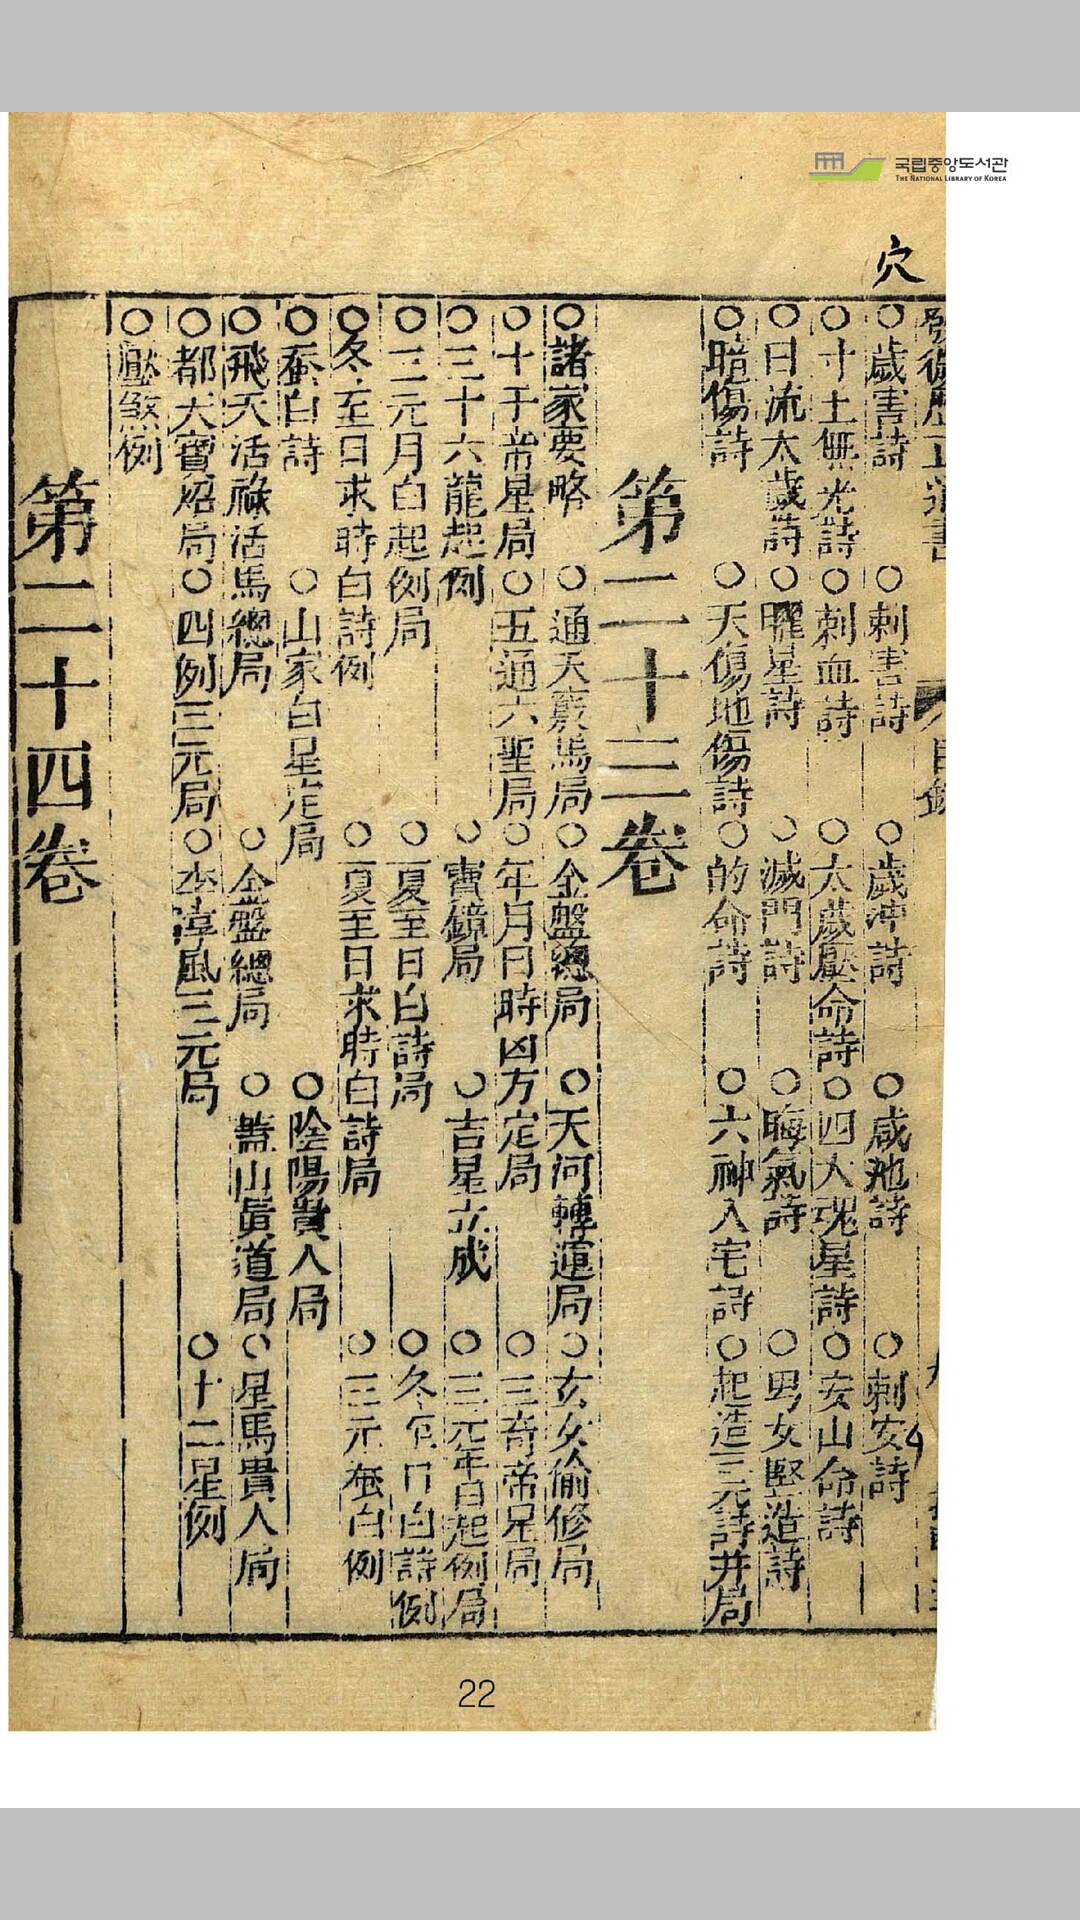 국립중앙도서관
THE NATIONAL LIBRARY OF KOREA
穴
○歲害詩○刺害詩○歲冲詩○咸池詩○刺安詩
○寸土無光詩○刺血詩○太歲壓命詩○四大魂星詩○安山命詩
○日流太歲詩○曜星詩○滅門詩○晦氣詩○男女竪造詩
○暗傷詩○天傷地傷詩○的命詩○六神入宅詩○起造三元詩井局
第二十三卷
○諸家要略○通天竅馬局○金盤總局○天河轉運局○玄女偷修局
○十干帝星局○五通六聖局○年月日時凶方定局○三奇帝星局
○三十六龍起例○寶鏡局○吉星立成○三元年白起例局
○三元月白起例局○夏至日白詩局○冬至日白詩例
○冬至日求時白詩例○夏至日求時白詩局○三元蚕白例
○蚕白詩○山家白星定局○陰陽貴人局
○飛天活祿活馬總局○金盤總局○蓋山黃道局○星馬貴人局
○都天寶炤局○四例三元局○李淳風三元局○十二星例
○壓煞例
第二十四卷
22